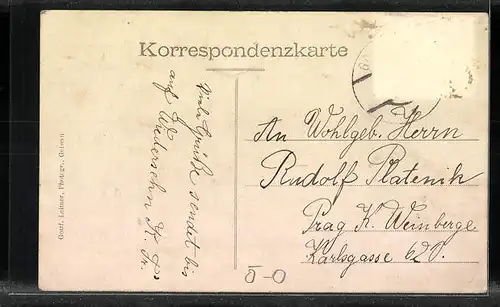 Korrespondenzkarte
Viele Grüße sendet bis
auf Wiedersehn K. Fr.
An Wohlgeb. Herrn
Rudolf Platenik
Prag K. Weinberge
Karlsgasse 620.
5-0
Gottf. Leitner, Photogr.,